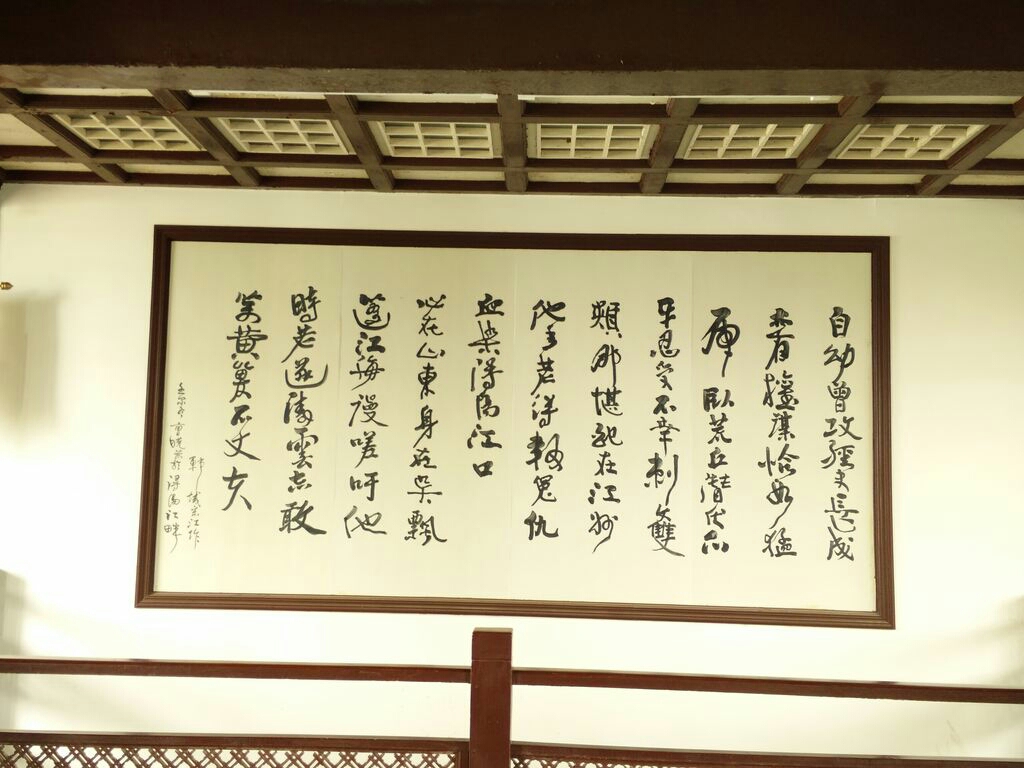 自幼曾攻經史長成
亦有權謀恰如猛
虎卧荒丘潛伏爪
牙忍受不幸刺雙
頰那堪配在江州
他年若得報冤仇
血染潯陽江口
心在山東身在吳飄
蓬江海謾嗟吁他
時若遂凌雲志敢
笑黄巢不丈夫
城宋江作
於潯陽江畔